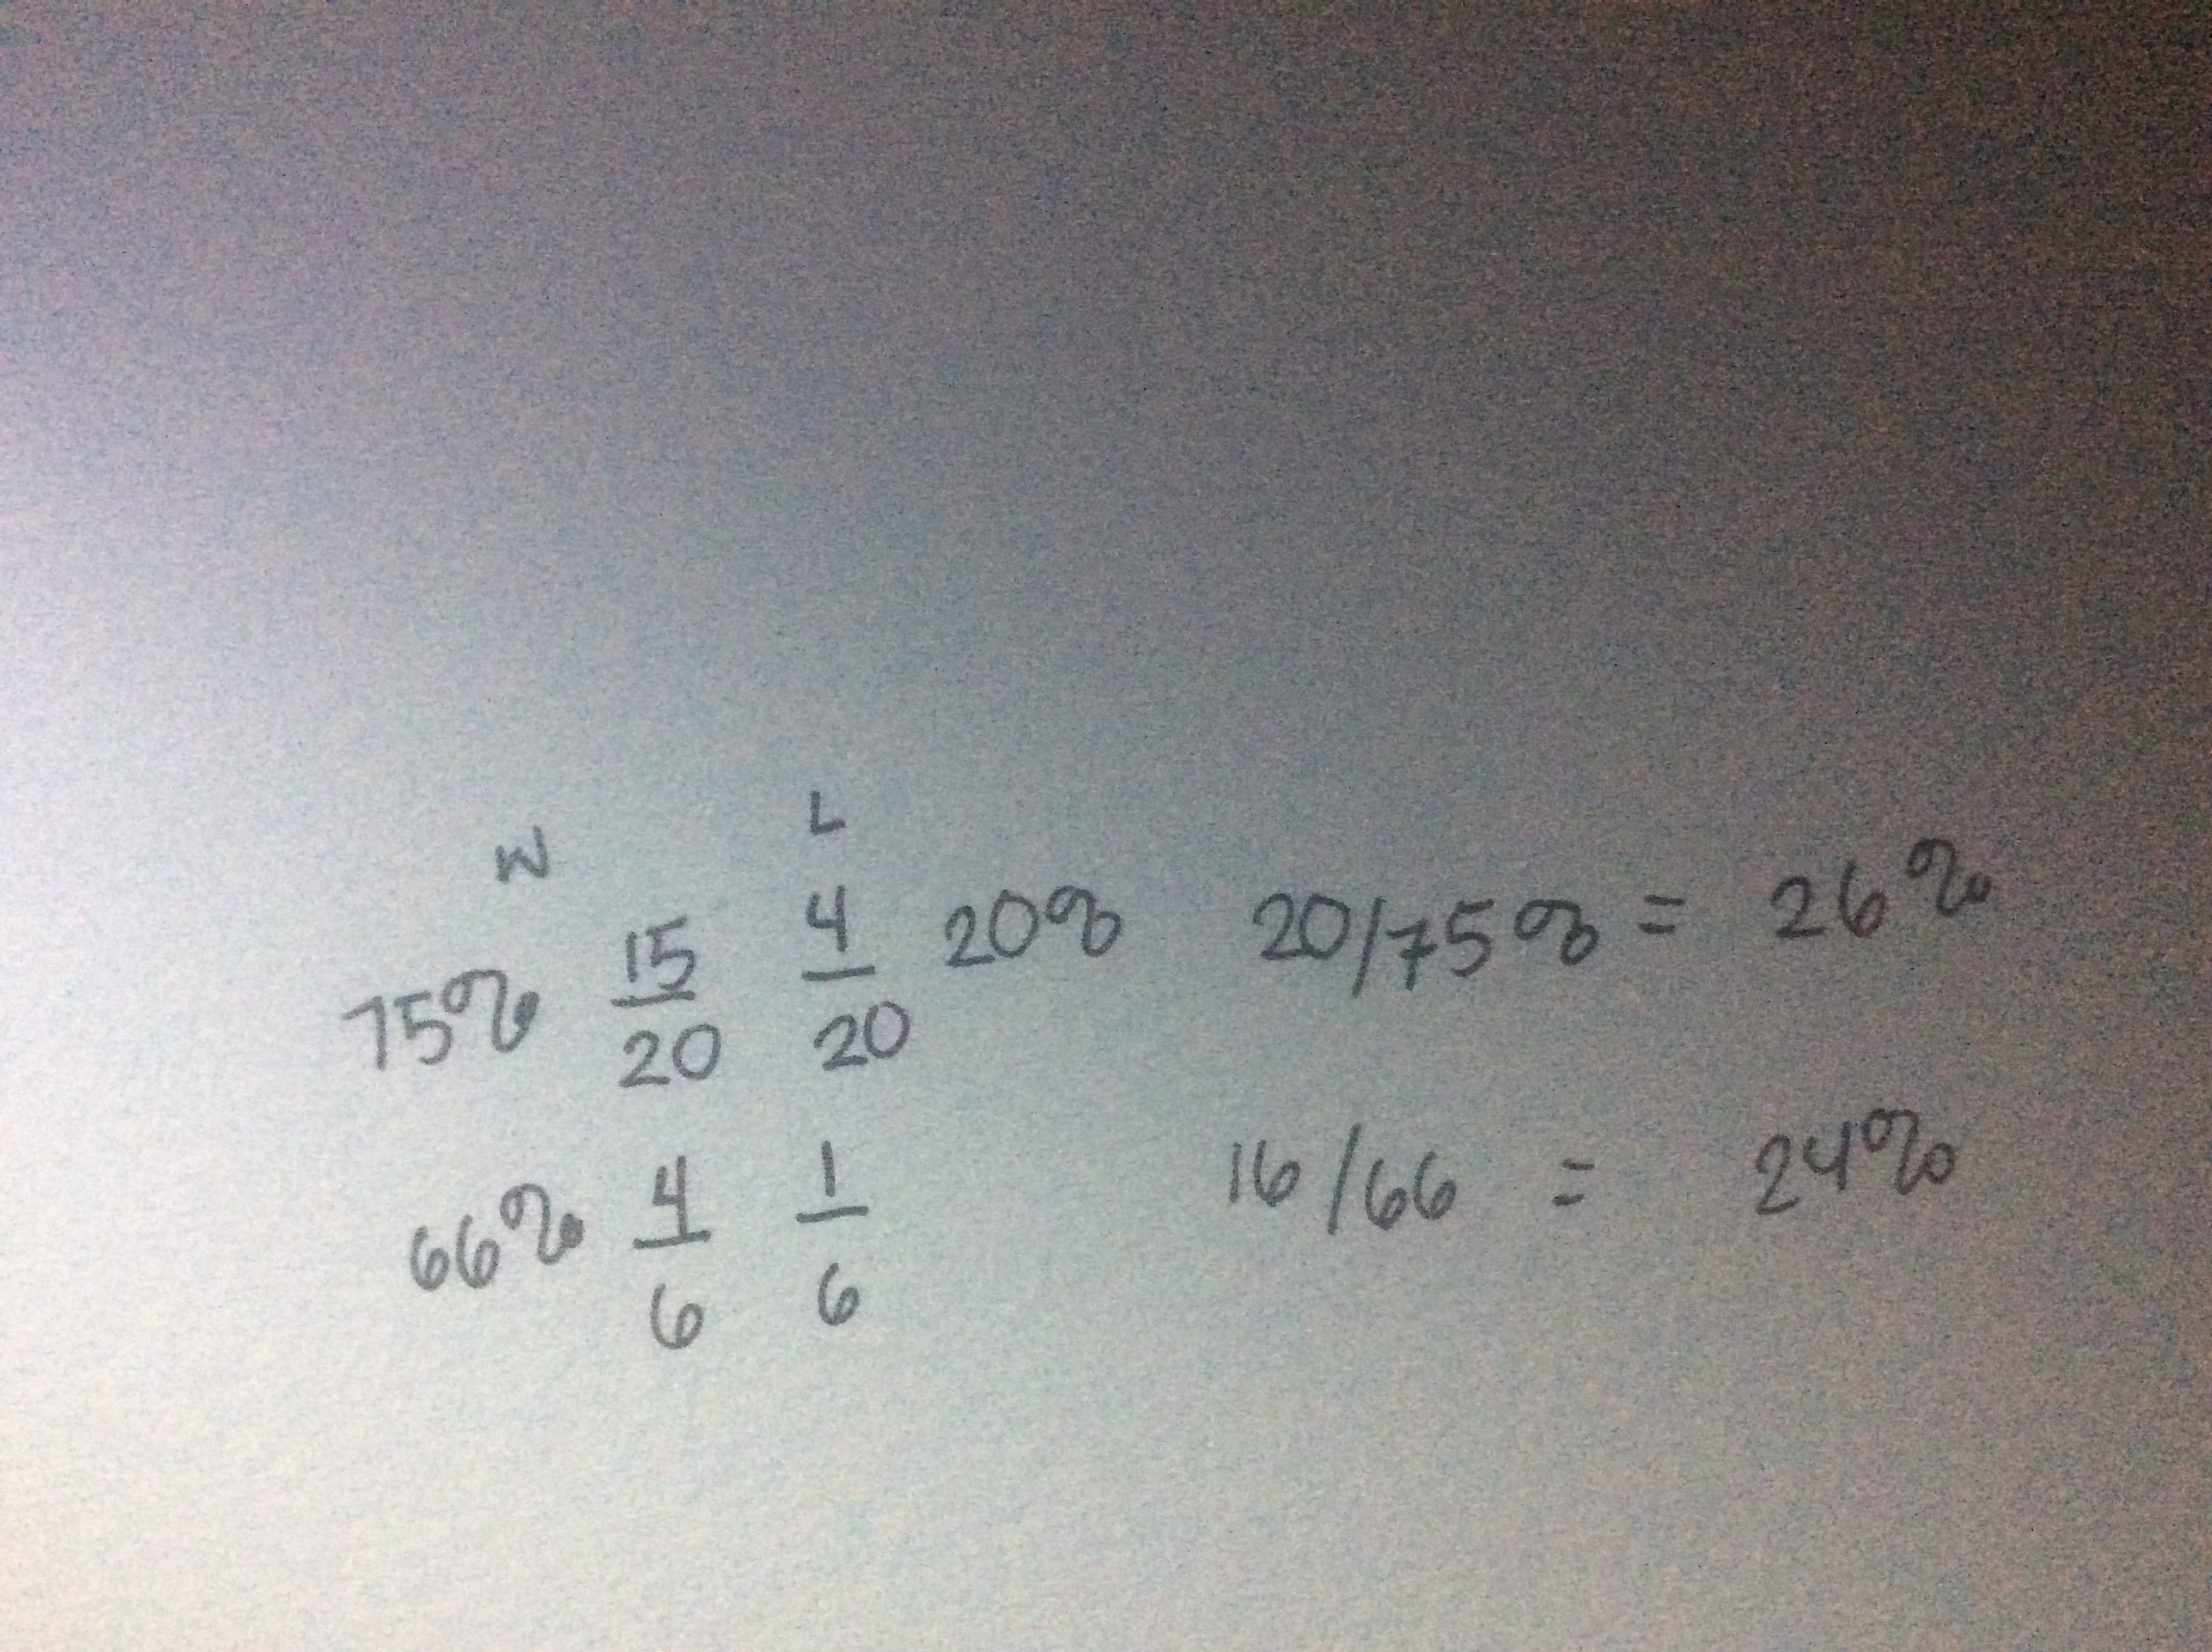 W L
75% 15/20 4/20 20% 20/75% = 26%
66% 4/6 1/6 16/66 = 24%